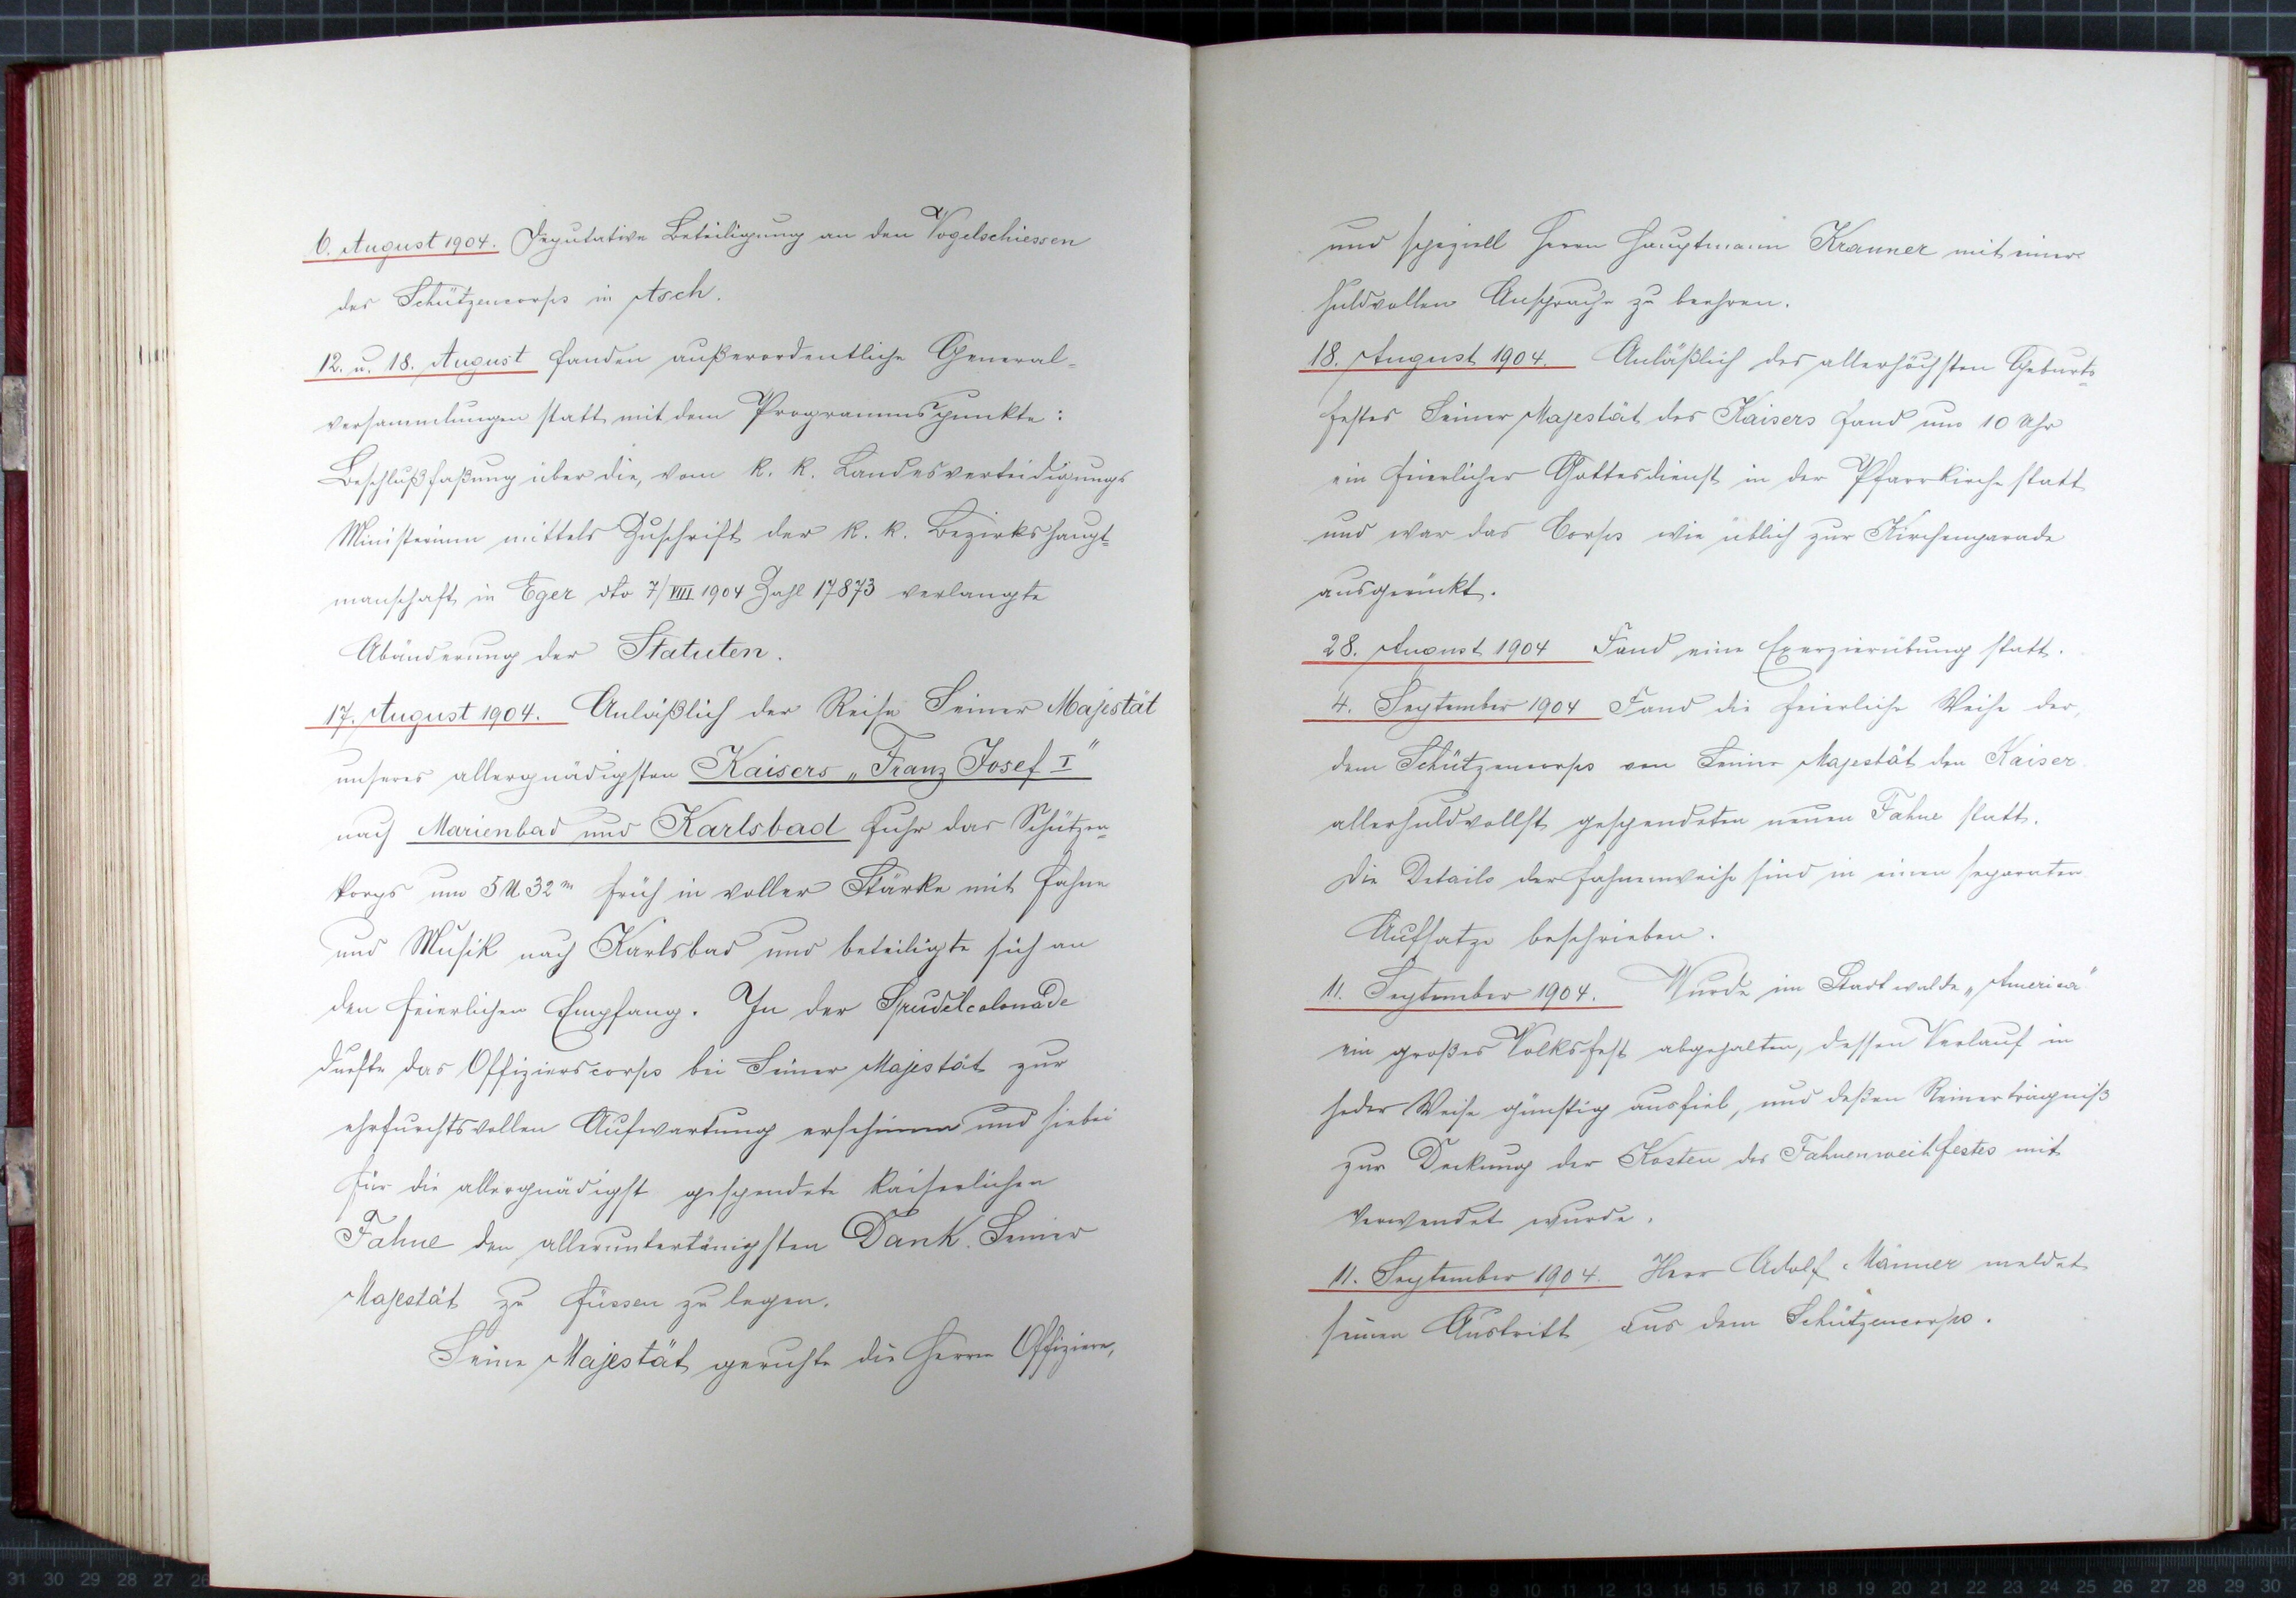 6. August 1904. Deputative Beteiligung an den Vogelschiessen
des Schützencorps in Asch.
12. u. 18. August fanden außerordentliche General-
versammlungen statt mit dem Programmspunkte:
Beschlußfaßung über die, vom k. k. Landesverteidigungs
Ministerium mittels Zuschrift der k. k. Bezirkshaupt-
manschaft in Eger dto 7/VIII 1904 Zahl 17873 verlangte
Abänderung der Statuten.
17. August 1904. Anläßlich der Reise Seiner Majestät
unseres allergnädigsten Kaisers „Franz Josef I"
nach Marienbad und Karlsbad fuhr das Schützen-
korps um 5 U 32 m früh in voller Stärke mit Fahne
und Musik nach Karlsbad und beteiligte sich an
den feierlichen Empfang. In der Sprudelcolonade
durfte das Offizierscorps bei Seiner Majestät zur
ehrfurchtsvollen Aufwartung erscheinen und hiebei
für die allergnädigst gespendete kaiserlichen
Fahne den alleruntertänigsten Dank Seiner
Majestät zu füssen zu legen.
Seine Majestät geruhte die Herren Offiziere,
und speziell Herrn Hauptmann Kranner mit einer
huldvollen Ansprache zu beehren.
18. August 1904. Anläßlich des allerhöchsten Geburts-
festes Seiner Majestät des Kaisers fand um 10 Uhr
ein feierlicher Gottesdienst in der Pfarrkirche statt
und war das Corps wie üblich zur Kirchenparade
ausgerückt.
28. August 1904 Fand eine Exerzierübung statt.
4. September 1904 Fand die feierliche Weihe der,
dem Schützencorps von Seiner Majestät den Kaiser
allerhuldvollst gespendeten neuen Fahne statt.
Die Details der Fahnenweihe sind in einen separaten
Aufsatze beschrieben.
11. September 1904. Wurde im Stadtwalde „America"
ein großes Volksfest abgehalten, dessen Verlauf in
jeder Weise günstig ausfiel, und deßen Reinerträgniß
zur Deckung der Kosten des Fahnenweihfestes mit
verwendet wurde.
11. September 1904. Herr Adolf Männer meldet
seinen Austritt aus dem Schützencorps.